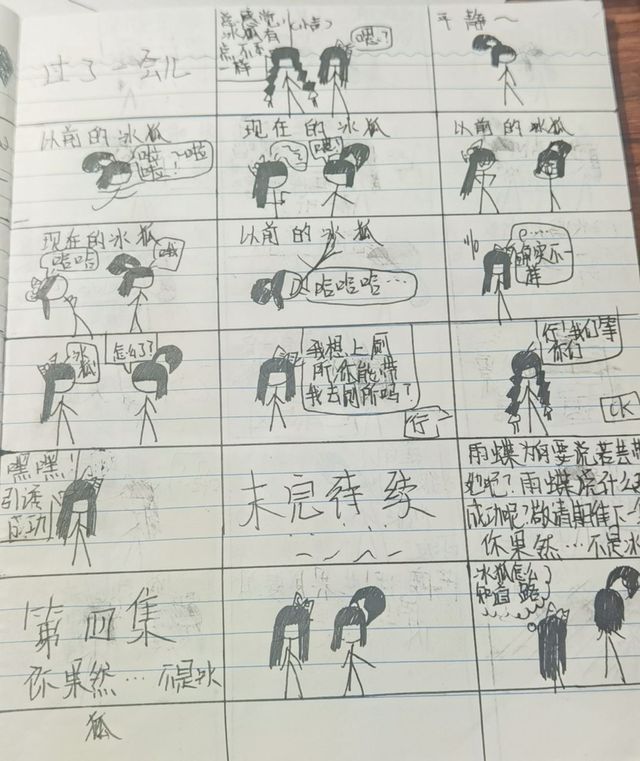 过了一会儿
感觉
冰狐有
点不太
一样
(小声)
嗯?
平静~
以前的冰狐
啦啦啦啦
现在的冰狐
嗯
以前的冰狐
现在的冰狐
哈哈
哦
以前的冰狐
哈哈哈…
确实不
一样
冰
狐
怎么了?
我想上厕
所,你能带
我去厕所吗?
行~
行!我们等
你们
OK
嘿嘿!
引诱
成功
未完待续
雨蝶为何要
她呢?雨蝶说什么
成功呢?敬请期待下一
你果然…不是冰
第四集
你果然…不是冰
狐
冰狐怎么
知道路?